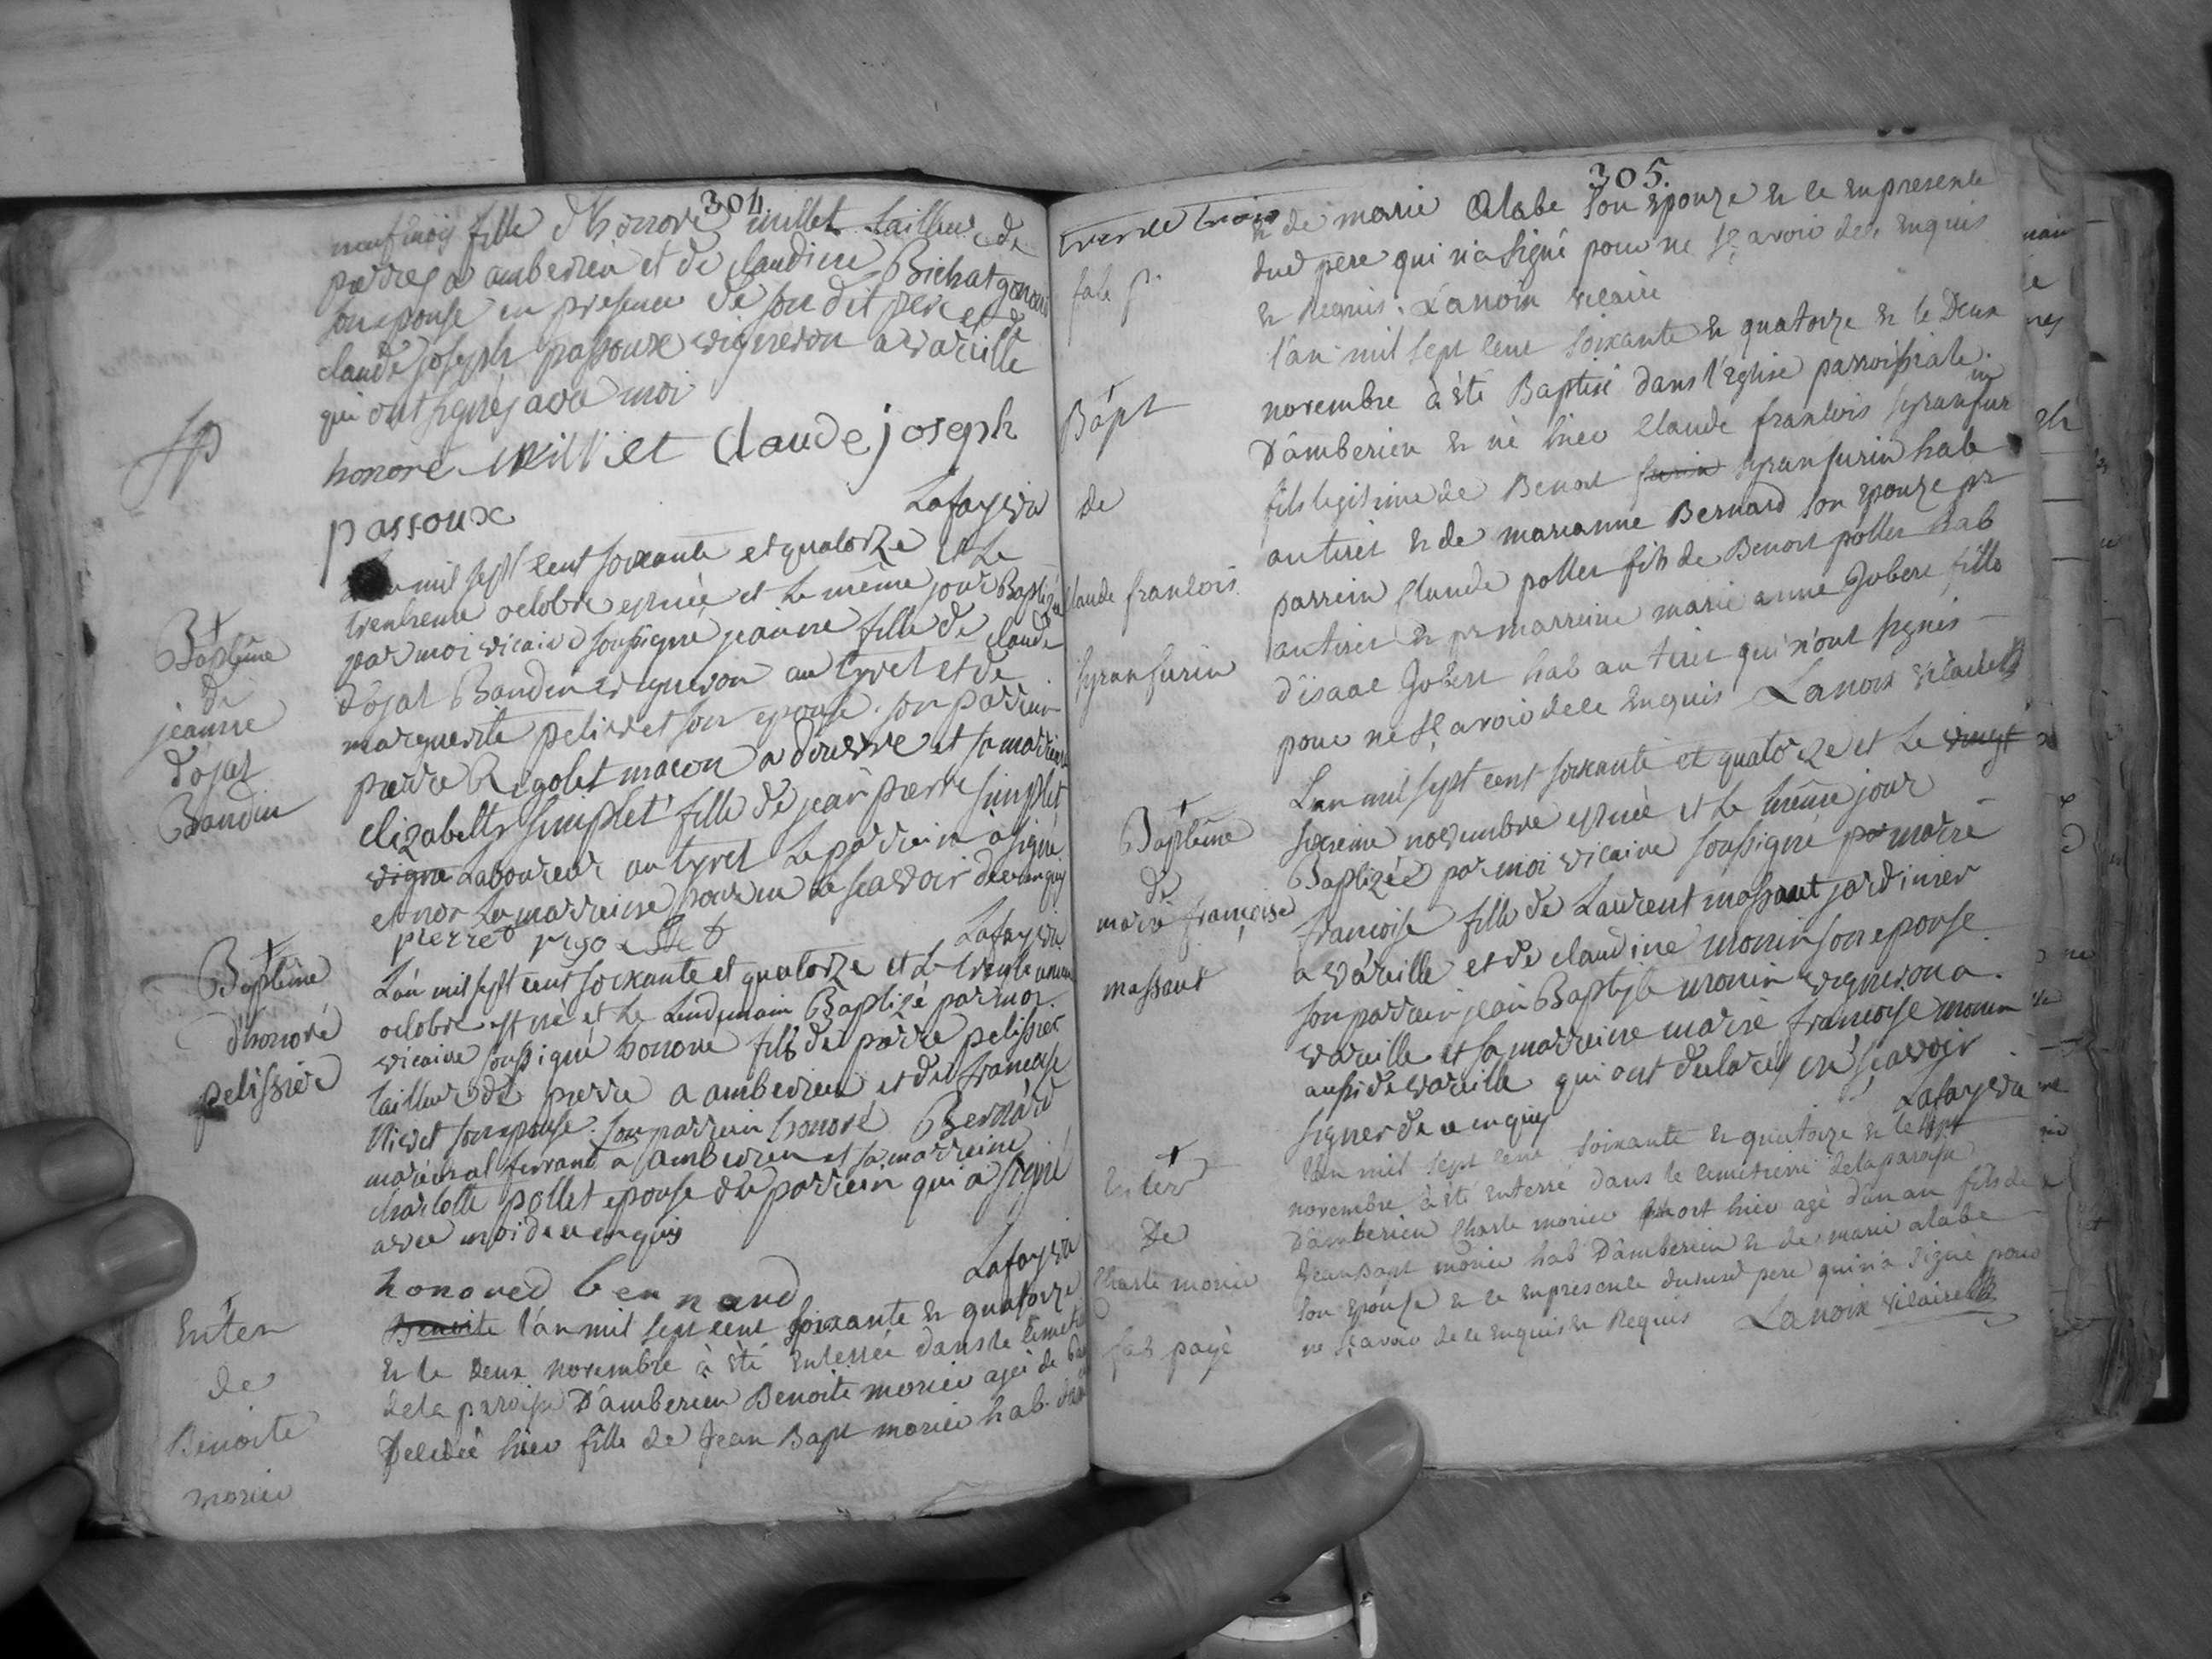 304.
neuf mois fille d'honoré millet tailleur de
pierres a amberieu et de claudine Bichat gonoud
son epouse en presence de son dit pere et de
claude joseph passoux vigneron a vareille
qui ont signés avec moi
honoré Milliet Claude joseph
passoux Lafay vic
mil sept cent soixante et quatorze et le
octobre est née et le même jour Baptizée
par moi vicaire soussigné jeanne fille de claude
dojat Baudin vigneron au tyret et de
marguerite pelivet son epouse son parrein
pierre Rigolet macon a douvre et sa marreine
elizabeth simplet fille de jean pierre simplet
vigne Laboureur au tyret Le parrein a signé
et non La marreine pour ne le scavoir de ce enquis
pierre rigollet Lafay vic
Baptême
de
jeanne
dojat
Baudin
L'an mil sept cent soixante et quatorze et Le trente
octobre est né et Le Lendemain Baptizé par moi
vicaire soussigné honoré fils de pierre pelissier
tailleur de pierre a amberieu et de francoise
son epouse son parrein honoré Bernard
maréchal ferrant a amberieu et sa marreine
charlotte pollet epouse du parrein qui a signé
avec moi de ce enquis
honored bernard Lafay vic
Baptême
d'honoré
pelissier
Benoite l'an mil sept cent soixante et quatorze
et le deux novembre à été enterrée dans le
de la paroisse D'amberieu Benoite morier agée de
Decedée hier fille de Jean Bapt morier hab
Enter
de
Benoite
morier
305.
et de marie Alabe son epouze et ce en presence
dud pere qui n'a signé pour ne sçavoir de ce enquis
et Requis. Lanoix vicaire
l'an mil sept cent soixante et quatorze et le Deux
novembre à été Baptisé dans l'eglise parroissiale
D'amberieu et né hier Claude francois
fils legitime de Benoit hab
au tiret et de marianne Bernard son epouze pr
parrein Claude pollet fils de Benoit pollet hab
au tiret et pr marreine marie anne Jobert fille
d'isaac Jobert hab au tiret qui n'ont signés
pour ne sçavoir de ce enquis Lanoix vicaire
Bapt
de
Claude francois
L'an mil sept cent soixante et quatorze et Le vingt
novembre est née et Le même jour
Baptizée par moi vicaire soussigné par marie
francoise fille de Laurent massaut jardinier
a vareille et de claudine monin son epouse
son parrein jean Baptiste monin vigneron a
vareille et sa marreine marie francoise monin
aussi de vareille qui ont declarés ne scavoir
signer de ce enquis Lafay vic
Baptême
de
marie françoise
massaut
L'an mil sept cent soixante et quatorze et le sept
novembre à été enterré dans le cimetierre de la paroisse
D'amberieu Charle morier mort hier agé d'un an fils de
Jean Bapt morier hab D'amberieu et de marie alabe
son epouse et ce en presence du susd pere qui n'a signé pour
ne sçavoir de ce enquis et Requis Lanoix vicaire
Enter
De
Charle morier
payé